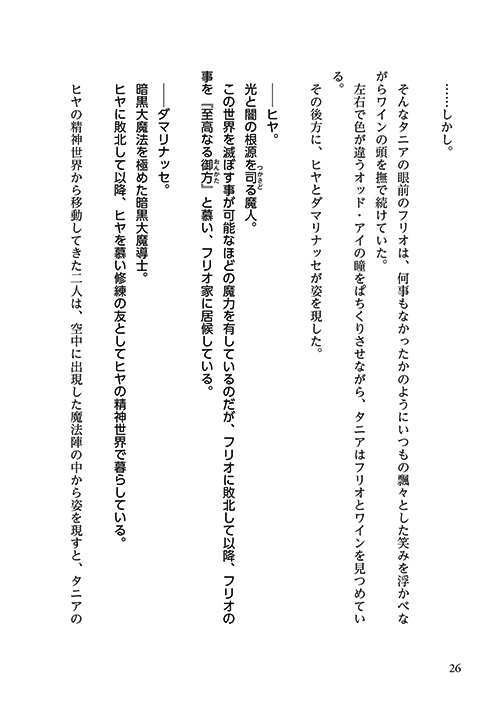 ……しかし。
そんなタニアの眼前のフリオは、何事もなかったかのようにいつもの飄々とした笑みを浮かべな
がらワインの頭を撫で続けていた。
左右で色が違うオッド・アイの瞳をぱちくりさせながら、タニアはフリオとワインを見つめてい
る。
その後方に、ヒヤとダマリナッセが姿を現した。
――ヒヤ。
光と闇の根源を司る魔人。
つかさど
この世界を滅ぼす事が可能なほどの魔力を有しているのだが、フリオに敗北して以降、フリオの
事を『至高なる御方』と慕い、フリオ家に居候している。
おんかた
――ダマリナッセ。
暗黒大魔法を極めた暗黒大魔導士。
ヒヤに敗北して以降、ヒヤを慕い修練の友としてヒヤの精神世界で暮らしている。
ヒヤの精神世界から移動してきた二人は、空中に出現した魔法陣の中から姿を現すと、タニアの
26